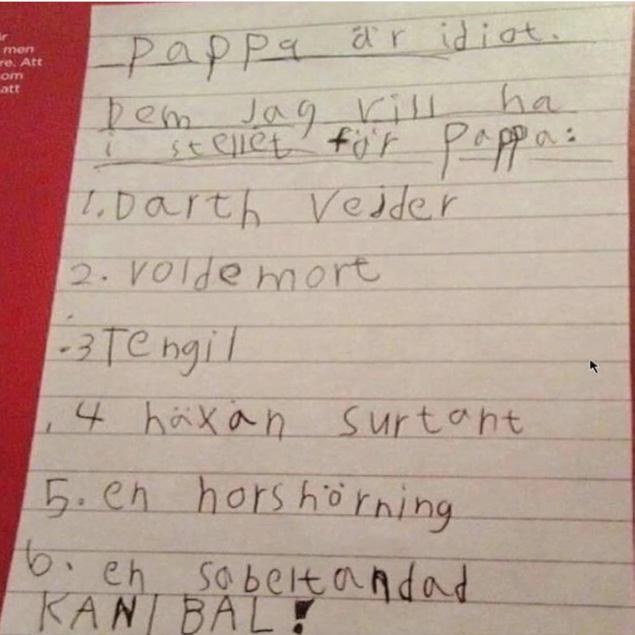 r
men
re. Att
om
att
pappa är idiot.
Dem Jag vill ha
i stellet för pappa:
1. Darth Vejder
2. voldemort
.3 Tengil
, 4 häxan surtant
5. en horshörning
6. en sabeltandad
KANIBAL!